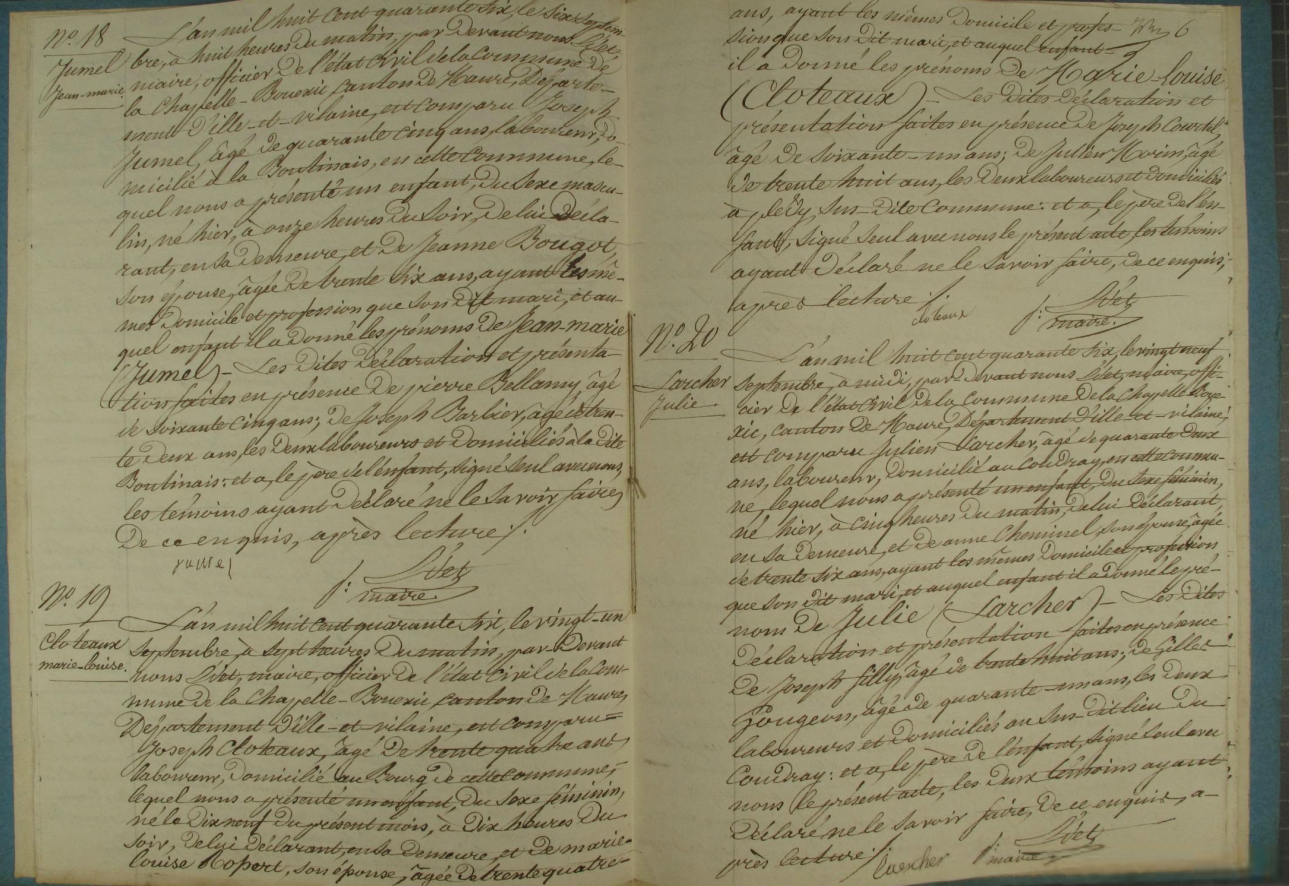 N.º 18
Jumel
Jean-marie
L'an mil huit cent quarante six, le six septem-
bre, à huit heures du matin, par devant nous
maire, officier de l'état civil de la Commune de
la Chapelle-Bouexic Canton de Maure, Départe-
ment d'ille-et-vilaine, est comparu Joseph
Jumel, âgé de quarante cinq ans, laboureur, do-
micilié à la Boutinais, en cette Commune, le-
quel nous a présenté un enfant, du sexe mascu-
lin, né hier, à onze heures du soir, de lui décla-
rant, en sa demeure, et de Jeanne Bougot
son épouse, âgée de trente six ans, ayant les mê-
mes domicile et profession que son dit mari, et au-
quel enfant il a donné les prénoms de Jean-marie
(Jumel) - Les dites déclaration et présenta-
tion faites en présence de pierre Bellamy, âgé
de soixante cinq ans; de Joseph Barbier, âgé de tren-
te deux ans, les deux laboureurs et domiciliés à la dite
Boutinais: et a, le père de l'enfant, signé seul avec nous,
les témoins ayant déclaré ne le savoir faire,
de ce enquis, après lecture.
jumel
maire.
N.º 19
Cloteaux
marie-louise.
L'an mil huit cent quarante six, le vingt-un
septembre, à sept heures du matin, par devant
nous maire, officier de l'état civil de la Com-
mune de la Chapelle-Bouexic canton de Maure,
Département d'ille-et-vilaine, est comparu
Joseph Cloteaux, âgé de trente quatre ans
laboureur, domicilié au Bourg de cette commune,
lequel nous a présenté un enfant, du sexe féminin,
né le dix neuf du présent mois, à dix heures du
soir, de lui déclarant, en sa demeure, et de marie-
louise Ropert, son épouse, âgée de trente quatre-
ans, ayant les mêmes domicile et profes- 6
sion que son dit mari, et auquel enfant
il a donné les prénoms de Marie-louise
(Cloteaux) - Les dites déclaration et
présentation faites en présence de Joseph Courtel,
âgé de soixante-un ans; de Julien Morin, âgé
de trente huit ans, les deux laboureurs et domiciliés
à sus-dite Commune: et a, le père de l'en-
fant, signé seul avec nous le présent acte, les témoins
ayant déclaré ne le savoir faire, de ce enquis,
après lecture
cloteaux
maire.
N.º 20
Larcher
Julie.
L'an mil huit cent quarante six, le vingt neuf
septembre, à midi, par devant nous maire, offi-
cier de l'état civil de la commune de la Chapelle Boue-
xic, canton de Maure, Département d'ille-et-vilaine,
est comparu Julien Larcher, âgé de quarante deux
ans, laboureur, domicilié au Coudray, en cette commu-
ne, lequel nous a présenté un enfant, du sexe féminin,
né hier, à cinq heures du matin, de lui déclarant,
en sa demeure, et de anne Cheminel, son épouse, âgée
de trente six ans, ayant les mêmes domicile et profession
que son dit mari, et auquel enfant il a donné le pré-
nom de Julie (Larcher) - Les dites
déclaration et présentation faites en présence
de Joseph filly, âgé de trente huit ans; de Gilles
Pougeon, âgé de quarante-un ans, les deux
laboureurs et domiciliés au sus-dit lieu du
Coudray: et a, le père de l'enfant, signé seul avec
nous le présent acte, les deux témoins ayant
déclaré ne le savoir faire, de ce enquis, a-
près lecture
maire